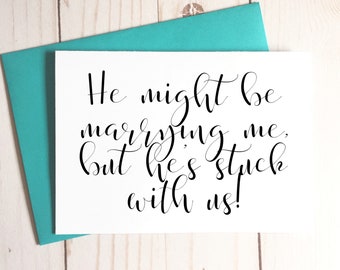 He might be
marrying me,
but he's stuck
with us!